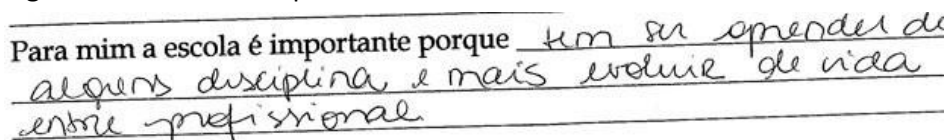 Para mim a escola é importante porque tem ser aprender de
alguns disciplina e mais evoluir de vida
entre profissional